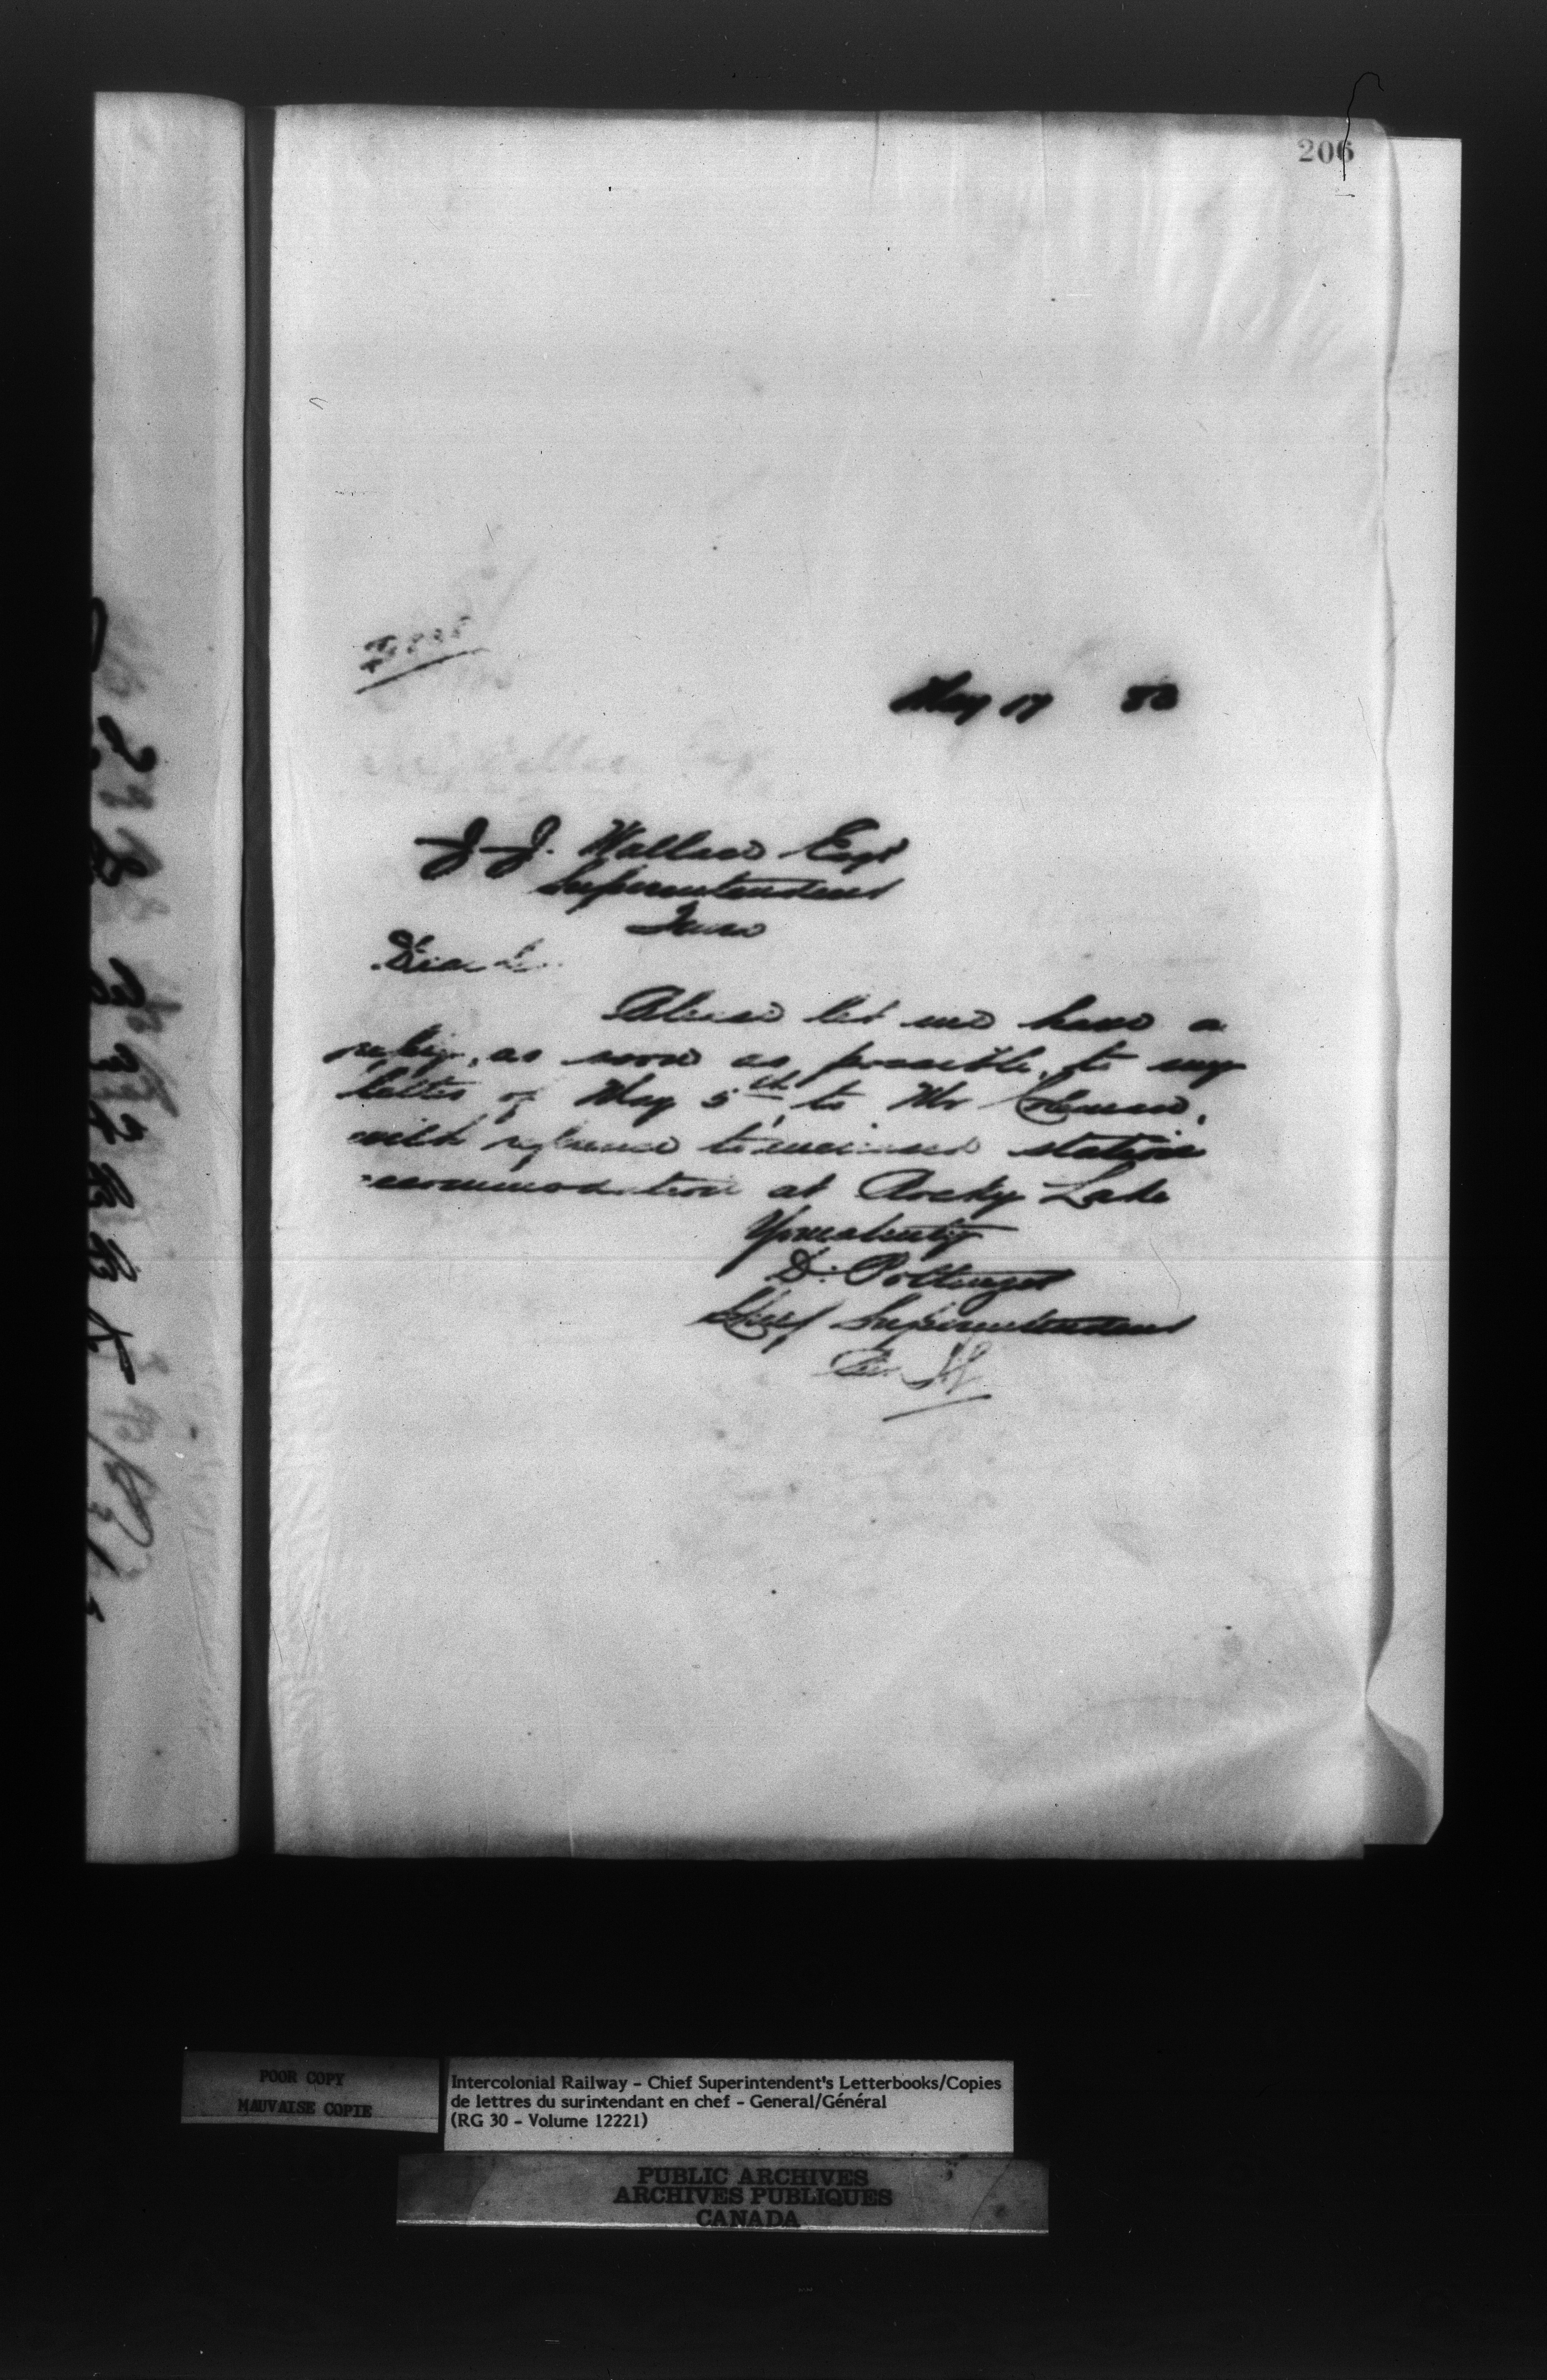 206
May 17 80
J. J. Wallace Esqr
Superintendent
Truro
Dear Sir
Please let me have a
reply, as soon as possible, to my
letter of May 5th, to Mr Coleman,
with reference to increased station
accommodation at Rocky Lake
Yours truly
D. Pottinger
Chief Superintendent
POOR COPY
MAUVAISE COPIE
Intercolonial Railway - Chief Superintendent's Letterbooks/Copies
de lettres du surintendant en chef - General/Général
(RG 30 - Volume 12221)
PUBLIC ARCHIVES
ARCHIVES PUBLIQUES
CANADA